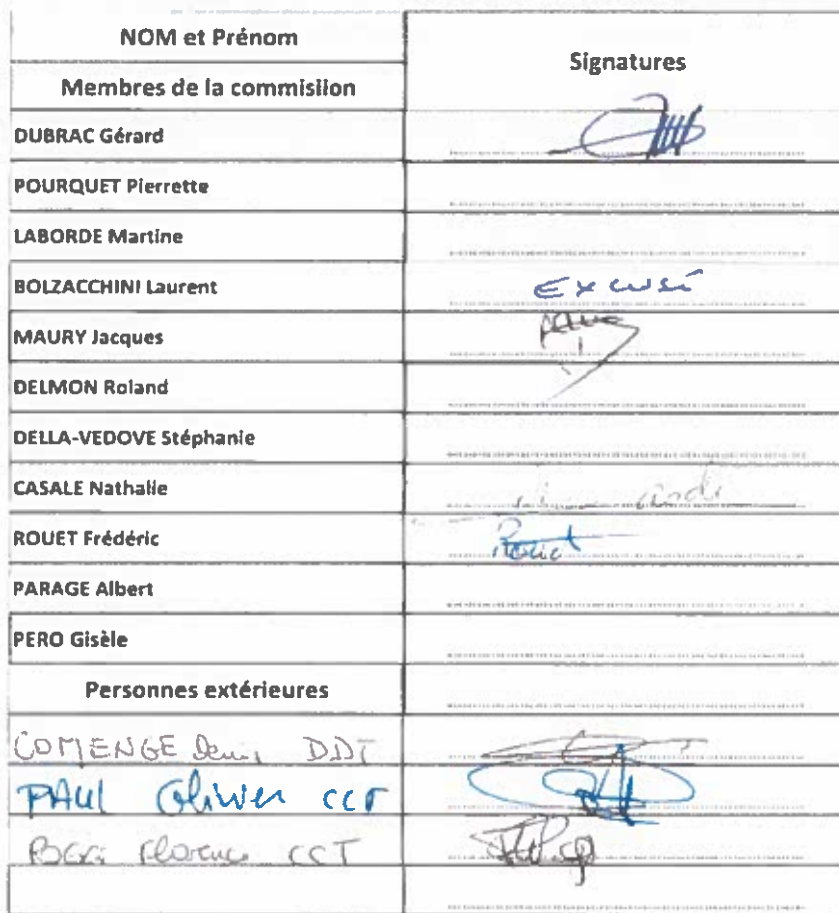 NOM et Prénom
Signatures
Membres de la commisiion
DUBRAC Gérard
POURQUET Pierrette
LABORDE Martine
BOLZACCHINI Laurent Excusé
MAURY Jacques
DELMON Roland
DELLA-VEDOVE Stéphanie
CASALE Nathalie
ROUET Frédéric Rouet
PARAGE Albert
PERO Gisèle
Personnes extérieures
COMENGE Denis DDT
PAUL Oliwer CCT
Florence CCT